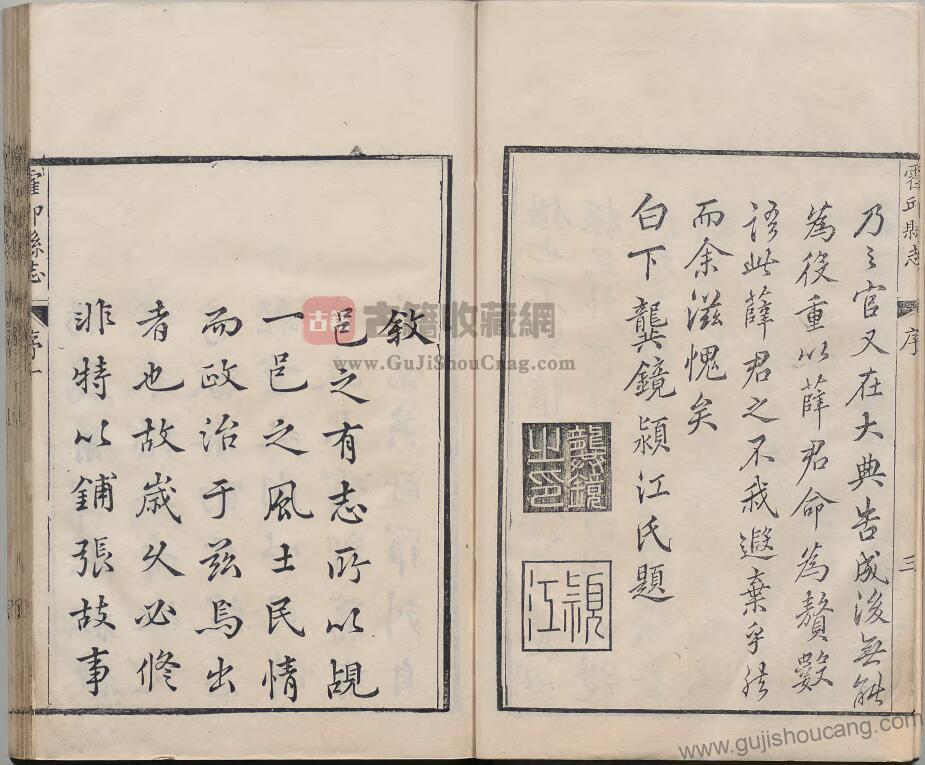 霍丘縣志
序
三
乃之官又在大典告成後無能
為役重以薛君命為贅數
語此薛君之不我遐棄乎然
而余滋愧矣
白下龔鏡潁江氏題
龔鏡之印
潁江
敘
邑之有志所以覘
一邑之風土民情
而政治于茲焉出
者也故歲久必修
非特以鋪張故事
霍邱縣志
序
古籍 古籍收藏網
www.GuJiShouCang.com
www.gujishoucang.com